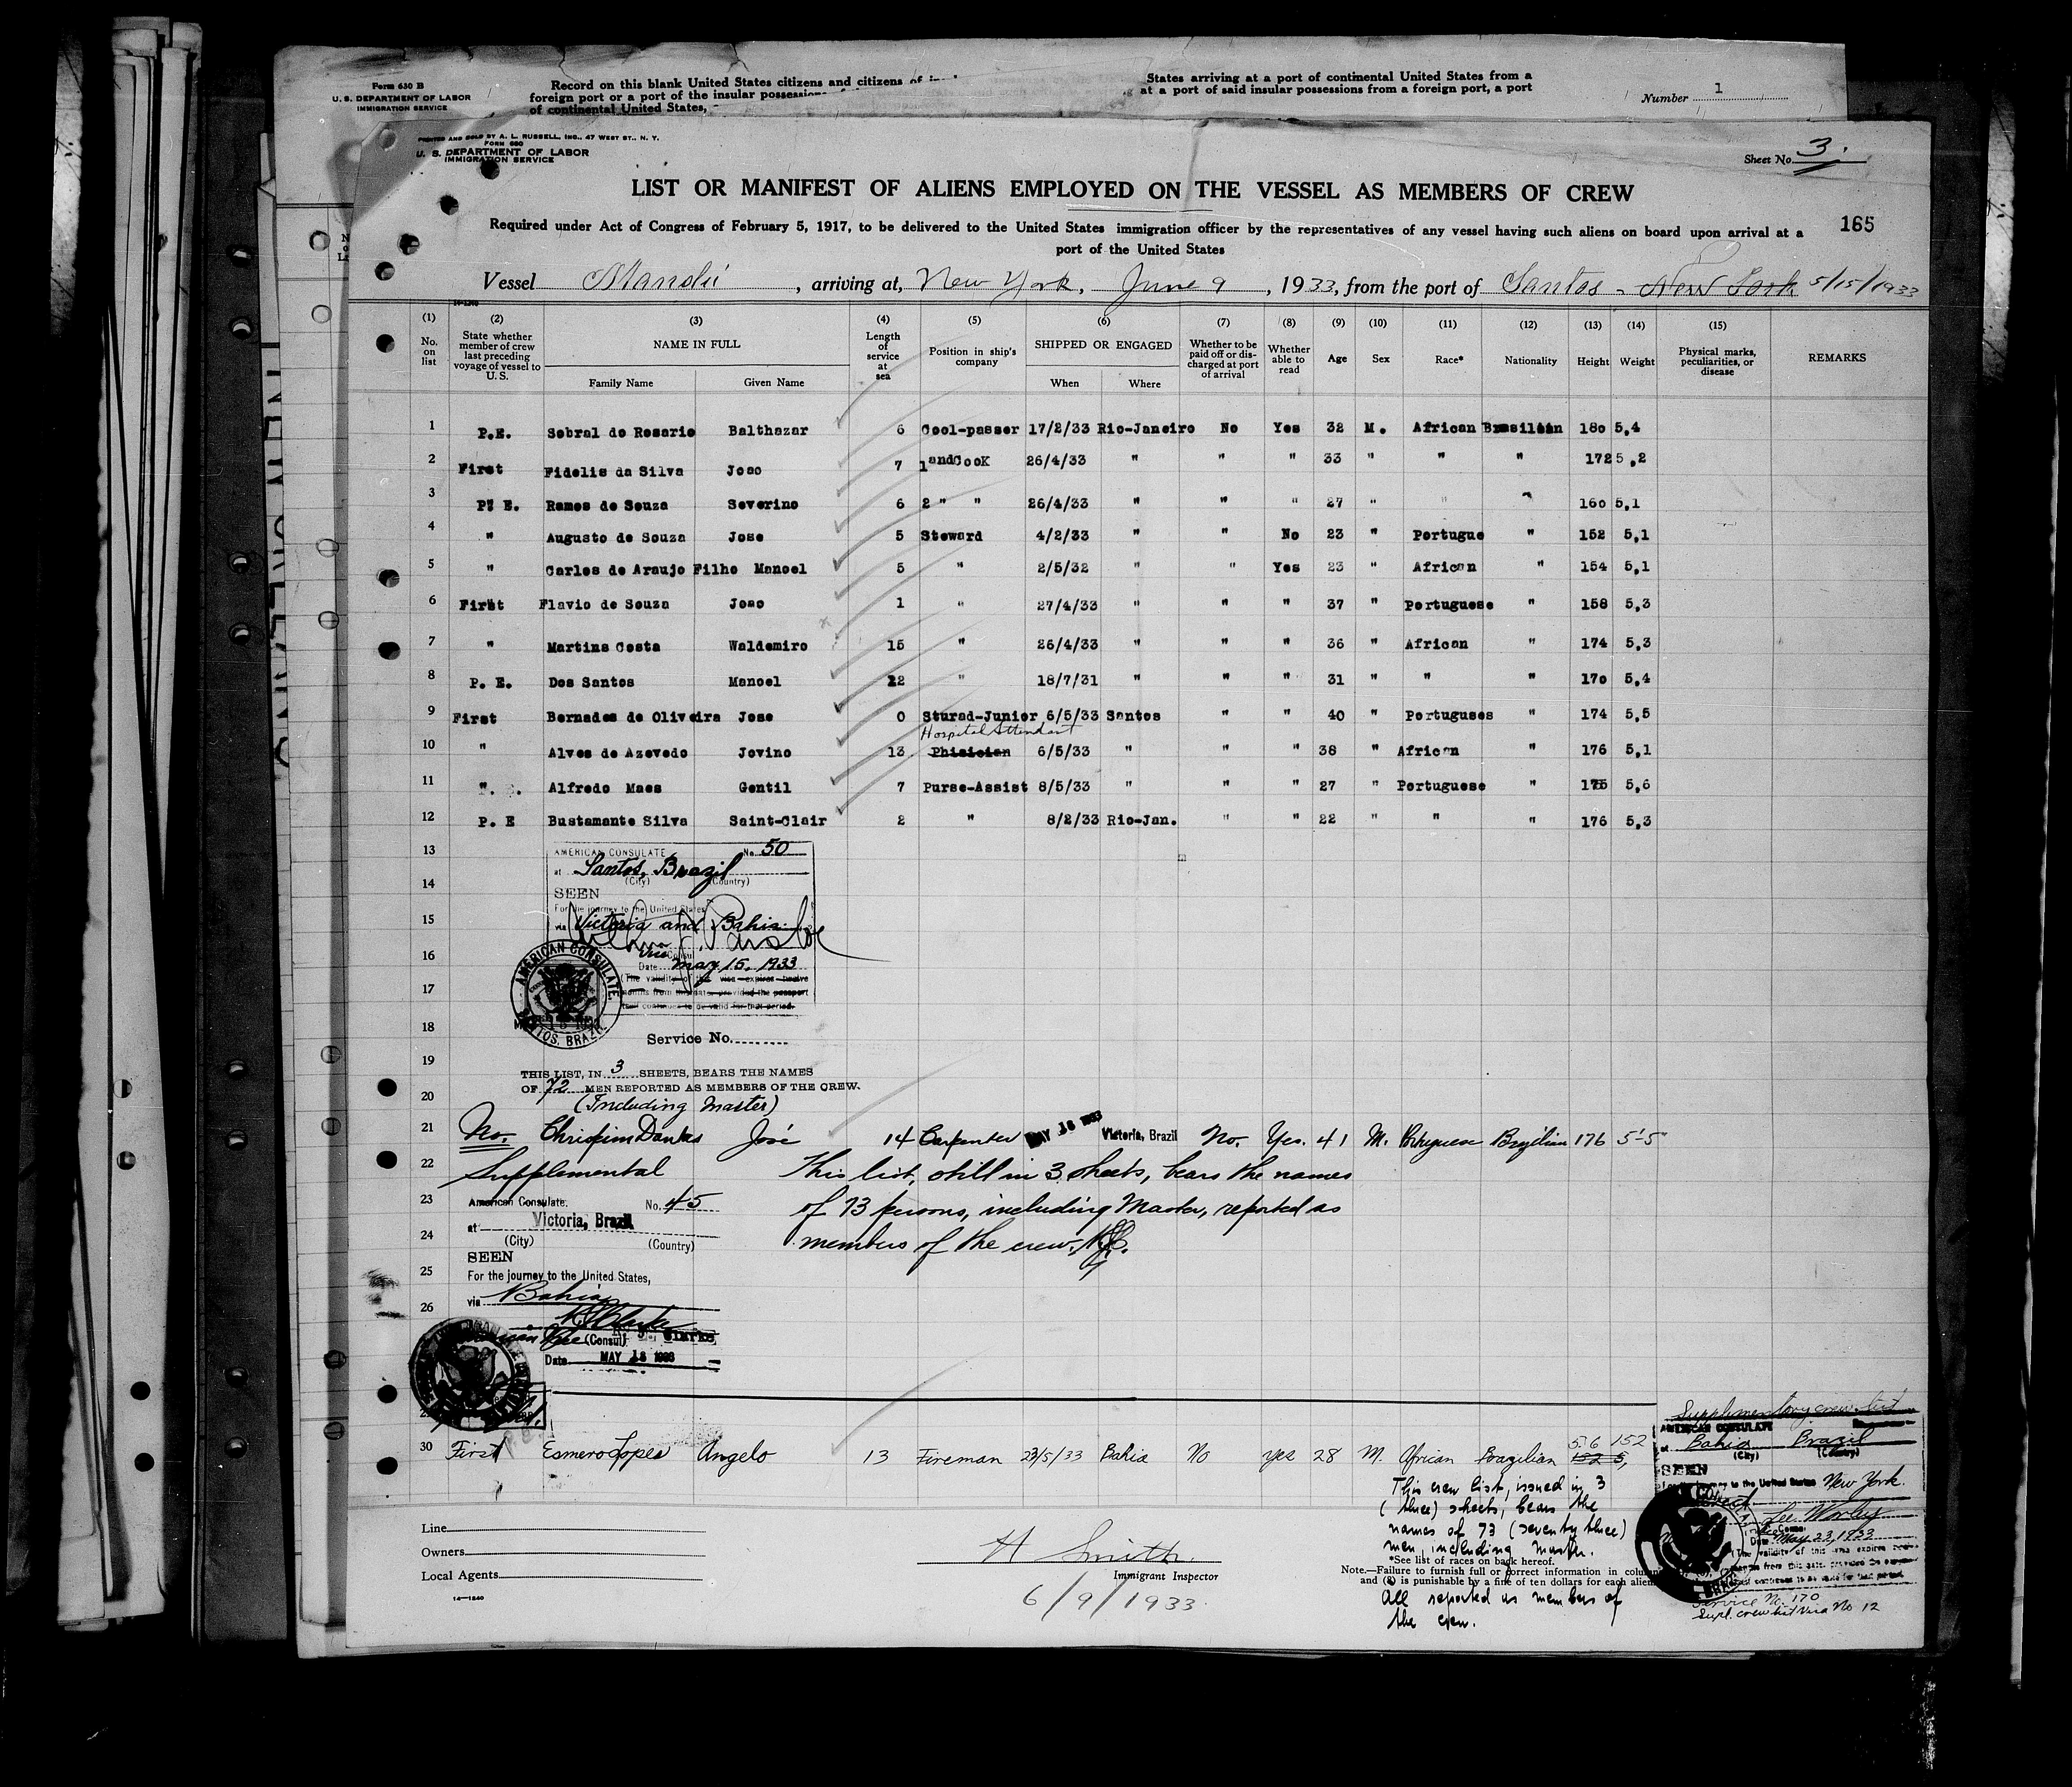 Form 630 B
U. S. DEPARTMENT OF LABOR
IMMIGRATION SERVICE
Record on this blank United States citizens and citizens of
foreign port or a port of the insular possessions
of continental United States,
States arriving at a port of continental United States from a
at a port of said insular possessions from a foreign port, a port
Number 1
PRINTED AND SOLD BY A. L. RUSSELL, INC., 47 WEST ST., N. Y.
FORM 680
U. S. DEPARTMENT OF LABOR
IMMIGRATION SERVICE
Sheet No. 3.
LIST OR MANIFEST OF ALIENS EMPLOYED ON THE VESSEL AS MEMBERS OF CREW
Required under Act of Congress of February 5, 1917, to be delivered to the United States immigration officer by the representatives of any vessel having such aliens on board upon arrival at a
port of the United States
165
Vessel Mandú, arriving at, New York, June 9, 1933, from the port of Santos - New York 5/15/1933
14-1240
(1) No. on list
(2) State whether member of crew last preceding voyage of vessel to U. S.
(3) NAME IN FULL Family Name Given Name
(4) Length of service at sea
(5) Position in ship's company
(6) SHIPPED OR ENGAGED When Where
(7) Whether to be paid off or discharged at port of arrival
(8) Whether able to read
(9) Age
(10) Sex
(11) Race*
(12) Nationality
(13) Height
(14) Weight
(15) Physical marks, peculiarities, or disease
REMARKS
1 P.E. Sobral do Rosario Balthazar 6 Cool-passer 17/2/33 Rio-Janeiro No Yes 32 M. African Brasilian 180 5,4
2 First Fidelis da Silva Joao 7 1 and Cook 26/4/33 " " " 33 " " " 172 5,2
3 P. E. Ramos de Souza Severino 6 2 " " 26/4/33 " " " 27 " " " 160 5,1
4 " Augusto de Souza Jose 5 Steward 4/2/33 " " No 23 " Portugue " 152 5,1
5 " Carlos de Araujo Filho Manoel 5 " 2/5/32 " " Yes 23 " African " 154 5,1
6 First Flavio de Souza Joao 1 " 27/4/33 " " " 37 " Portuguese " 158 5,3
7 " Martins Costa Waldemiro 15 " 26/4/33 " " " 36 " African " 174 5,3
8 P. E. Dos Santos Manoel 12 " 18/7/31 " " " 31 " " " 170 5,4
9 First Bernades de Oliveira Jose 0 Sturad-Junior 6/5/33 Santos " " 40 " Portugueses " 174 5,5
Hospital Attendant
10 " Alves de Azevedo Jovino 13 Phisician 6/5/33 " " " 38 " African " 176 5,1
11 " Alfredo Maes Gentil 7 Purse-Assist 8/5/33 " " " 27 " Portuguese " 175 5,6
12 P. E Bustamante Silva Saint-Clair 2 " 8/2/33 Rio-Jan. " " 22 " " " 176 5,3
13
AMERICAN CONSULATE No. 50
at Santos, Brazil
(City) (Country)
14
SEEN
For the journey to the United States
15
via Victoria and Bahia
16
Vice Consul
Date May 15, 1933
(The validity of this visa expires twelve
17
months from this date, provided the passport
continues to be valid for that period.
AMERICAN CONSULATE. SANTOS, BRAZIL
18
Service No.
19
THIS LIST, IN 3 SHEETS, BEARS THE NAMES
OF 72 MEN REPORTED AS MEMBERS OF THE CREW.
20
(Including Master)
21 No. Chrispim Dantas José 14 Carpenter MAY 18 1933 Victoria, Brazil No. Yes. 41 M. Portuguese Brazilian 176 5'-5"
22 Supplemental This list, still in 3 sheets, bears the names
23 of 73 persons, including Master, reported as
24 members of the crew.
American Consulate. No. 45
at Victoria, Brazil
(City) (Country)
SEEN
25
For the journey to the United States,
26
via Bahia
Vice (Consul)
Date MAY 18 1933
30 First Esmero Lopes Angelo 13 Fireman 23/5/33 Bahia No yes 28 M. African Brazilian 5.6 152
152 5,
This crew list, issued in 3
(three) sheets, bears the
names of 73 (seventy three)
men, including master.
All reported as members of
the crew.
Supplementary crew list
AMERICAN CONSULATE
at Bahia Brazil
(City) (Country)
SEEN
For the journey to the United States New York.
Vice Consul
Date May 23, 1933
Service No. 170
Supl. crew list Visa No 12
Line
Owners
Local Agents
14-1240
H Smith
Immigrant Inspector
6/9/1933
*See list of races on back hereof.
Note.—Failure to furnish full or correct information in
and (8) is punishable by a fine of ten dollars for each alien